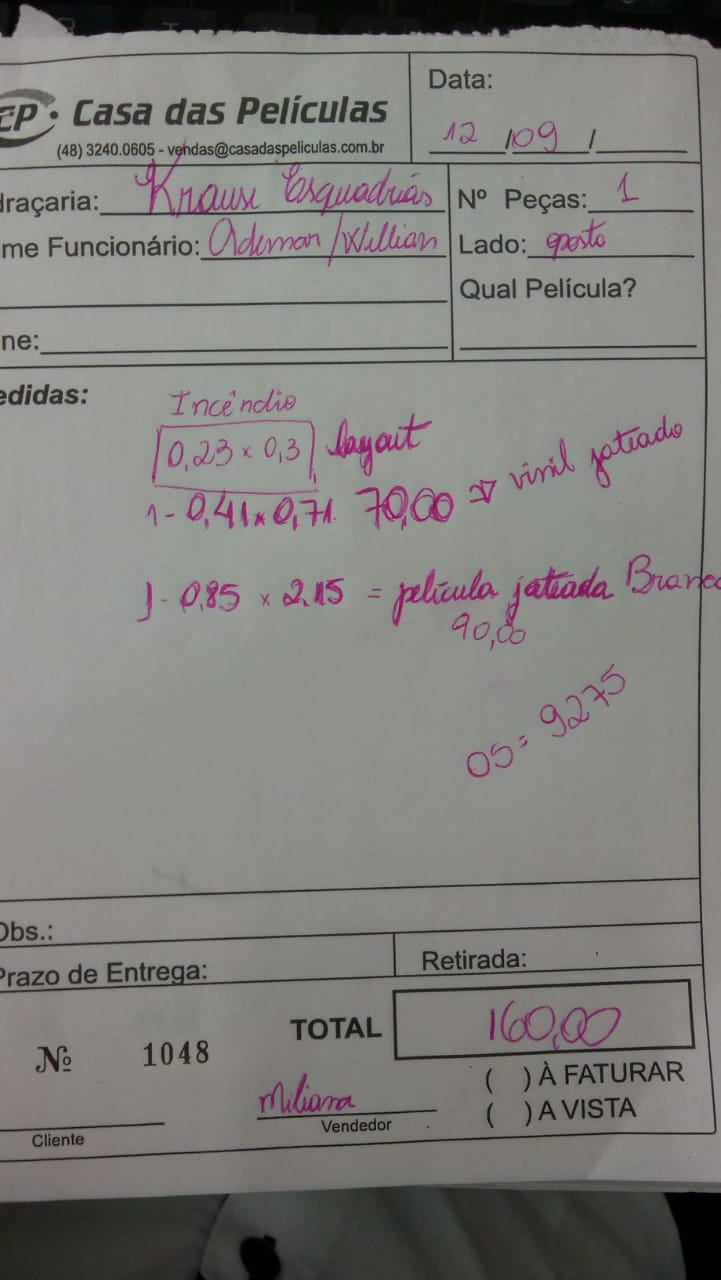 CP · Casa das Películas
(48) 3240.0605 - vendas@casadaspeliculas.com.br
Data:
12 / 09 /
draçaria: Krause Esquadrias
Nº Peças: 1
me Funcionário: Ademar / Willian
Lado: oposto
Qual Película?
ne:
edidas:
Incêndio
0,23 x 0,3 layout
1 - 0,41 x 0,71. 70,00 ⇒ vinil jateado
1 - 0,85 x 2,15 = película jateada Branca
90,00
OS = 9275
Obs.:
Prazo de Entrega:
Retirada:
TOTAL 160,00
Nº 1048
( ) À FATURAR
Miliana
( ) A VISTA
Vendedor
Cliente